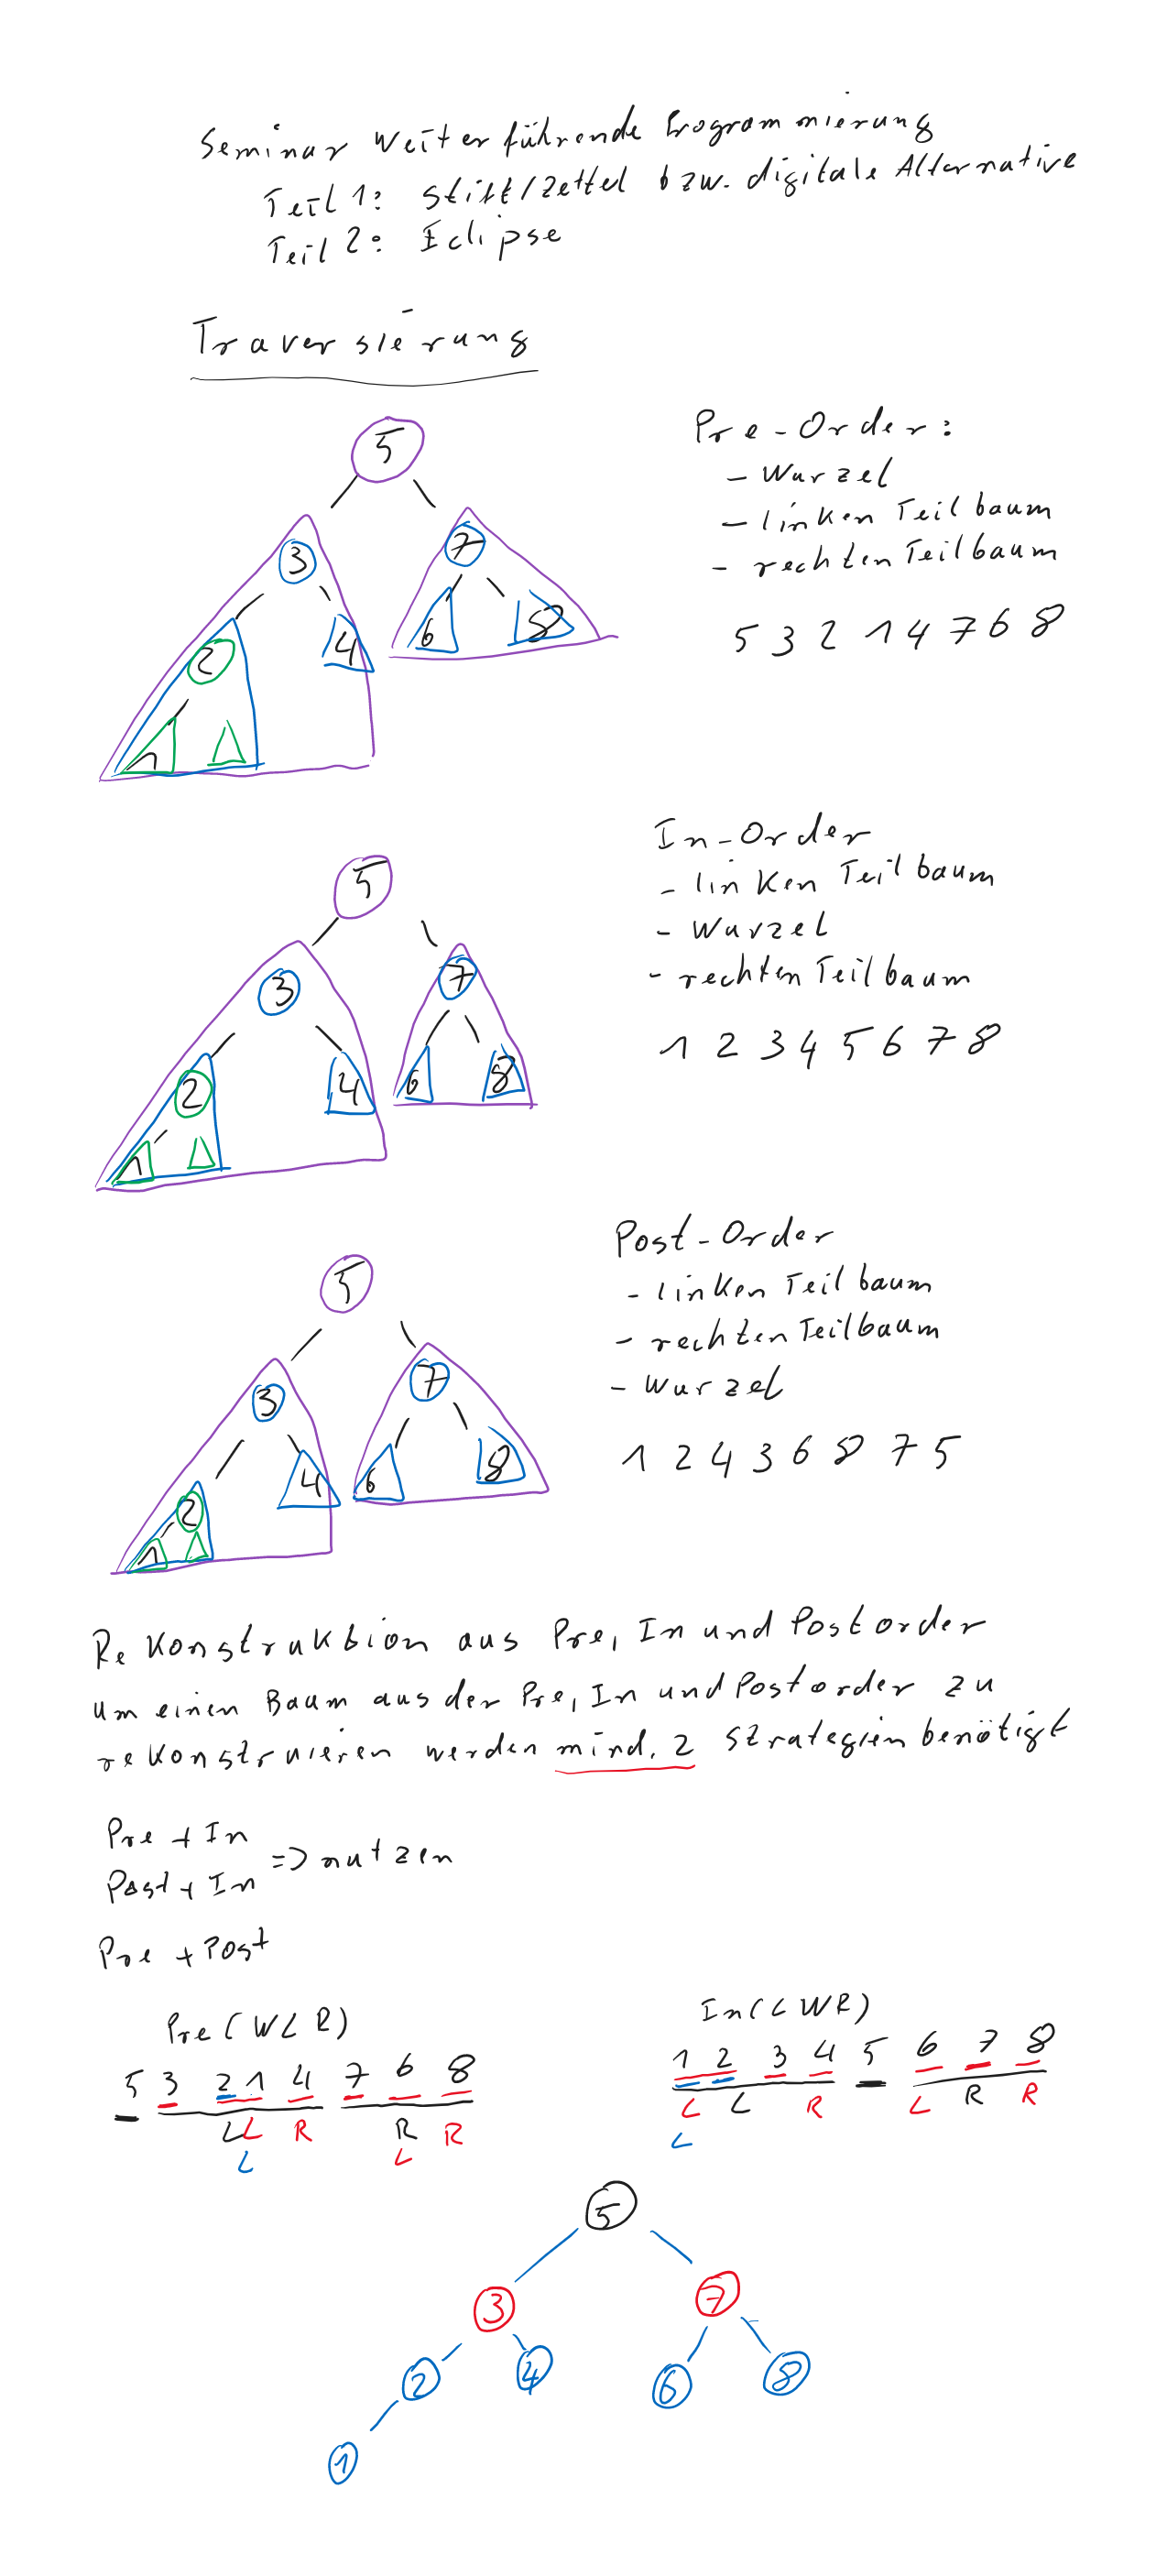 Seminar Weiterführende Programmierung
Teil 1: Stift/Zettel bzw. digitale Alternative
Teil 2: Eclipse
Traversierung
5
3
7
2
4
6
8
1
Pre-Order:
- Wurzel
- linken Teilbaum
- rechten Teilbaum
5 3 2 1 4 7 6 8
5
3
7
2
4
6
8
1
In-Order
- linken Teilbaum
- Wurzel
- rechten Teilbaum
1 2 3 4 5 6 7 8
5
3
7
2
4
6
8
1
Post-Order
- linken Teilbaum
- rechten Teilbaum
- Wurzel
1 2 4 3 6 8 7 5
Rekonstruktion aus Pre, In und Postorder
Um einen Baum aus der Pre, In und Postorder zu
rekonstruieren werden mind. 2 Strategien benötigt
Pre + In
Post + In
=> nutzen
Pre + Post
Pre (WLR)
5 3 2 1 4 7 6 8
L L R R R
L L
In (LWR)
1 2 3 4 5 6 7 8
L L R L R R
L
5
3 7
2 4 6 8
1